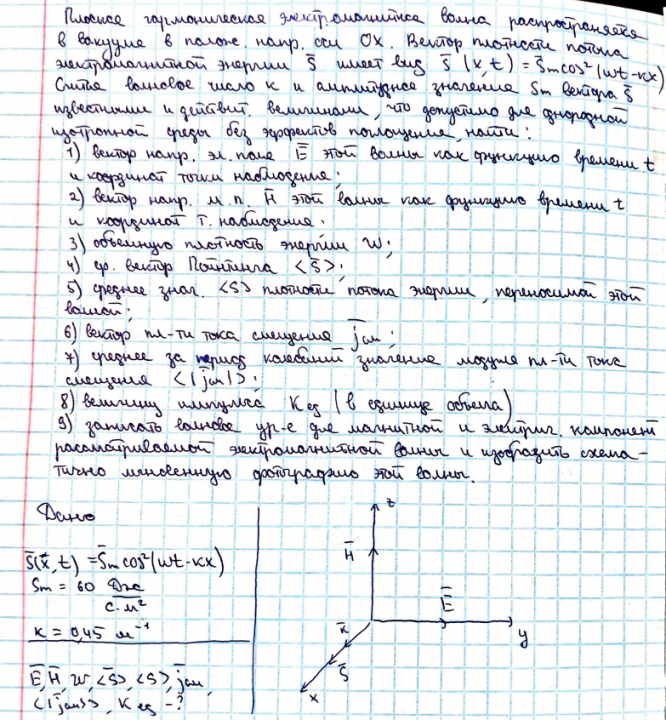 Плоская гармоническая электромагнитная волна распространяется
в вакууме в полож. напр. оси OX. Вектор плотности потока
электромагнитной энергии S̄ имеет вид S̄(x,t) = S̄m cos²(ωt-кx)
Считая волновое число к и амплитудное значение Sm вектора S̄
известными и действит. величинами, что допустимо для однородной
изотропной среды без эффектов поглощения, найти:
1) вектор напр. эл. поля Ē этой волны как функцию времени t
и координат точки наблюдения;
2) вектор напр. м.п. H̄ этой волны как функцию времени t
и координат т. наблюдения.
3) объемную плотность энергии w;
4) ср. вектор Пойнтинга <S̄>;
5) среднее знач. <S> плотности потока энергии, переносимой этой
волной;
6) вектор пл-ти тока смещения j̄см;
7) среднее за период колебаний значение модуля пл-ти тока
смещения <|j̄см|>;
8) величину импульса Kед (в единице объема)
9) записать волновое ур-е для магнитной и электрич. компонент
рассматриваемой электромагнитной волны и изобразить схема-
тично мгновенную фотографию этой волны.
Дано
S̄(x̄,t) = S̄m cos²(ωt-кx)
Sm = 60 Дж/с·м²
к = 0,45 м⁻¹
Ē, H̄, w, <S̄>, <S>, j̄см,
<|j̄см|>, Kед - ?
z
H̄
Ē
y
к̄
S̄
x